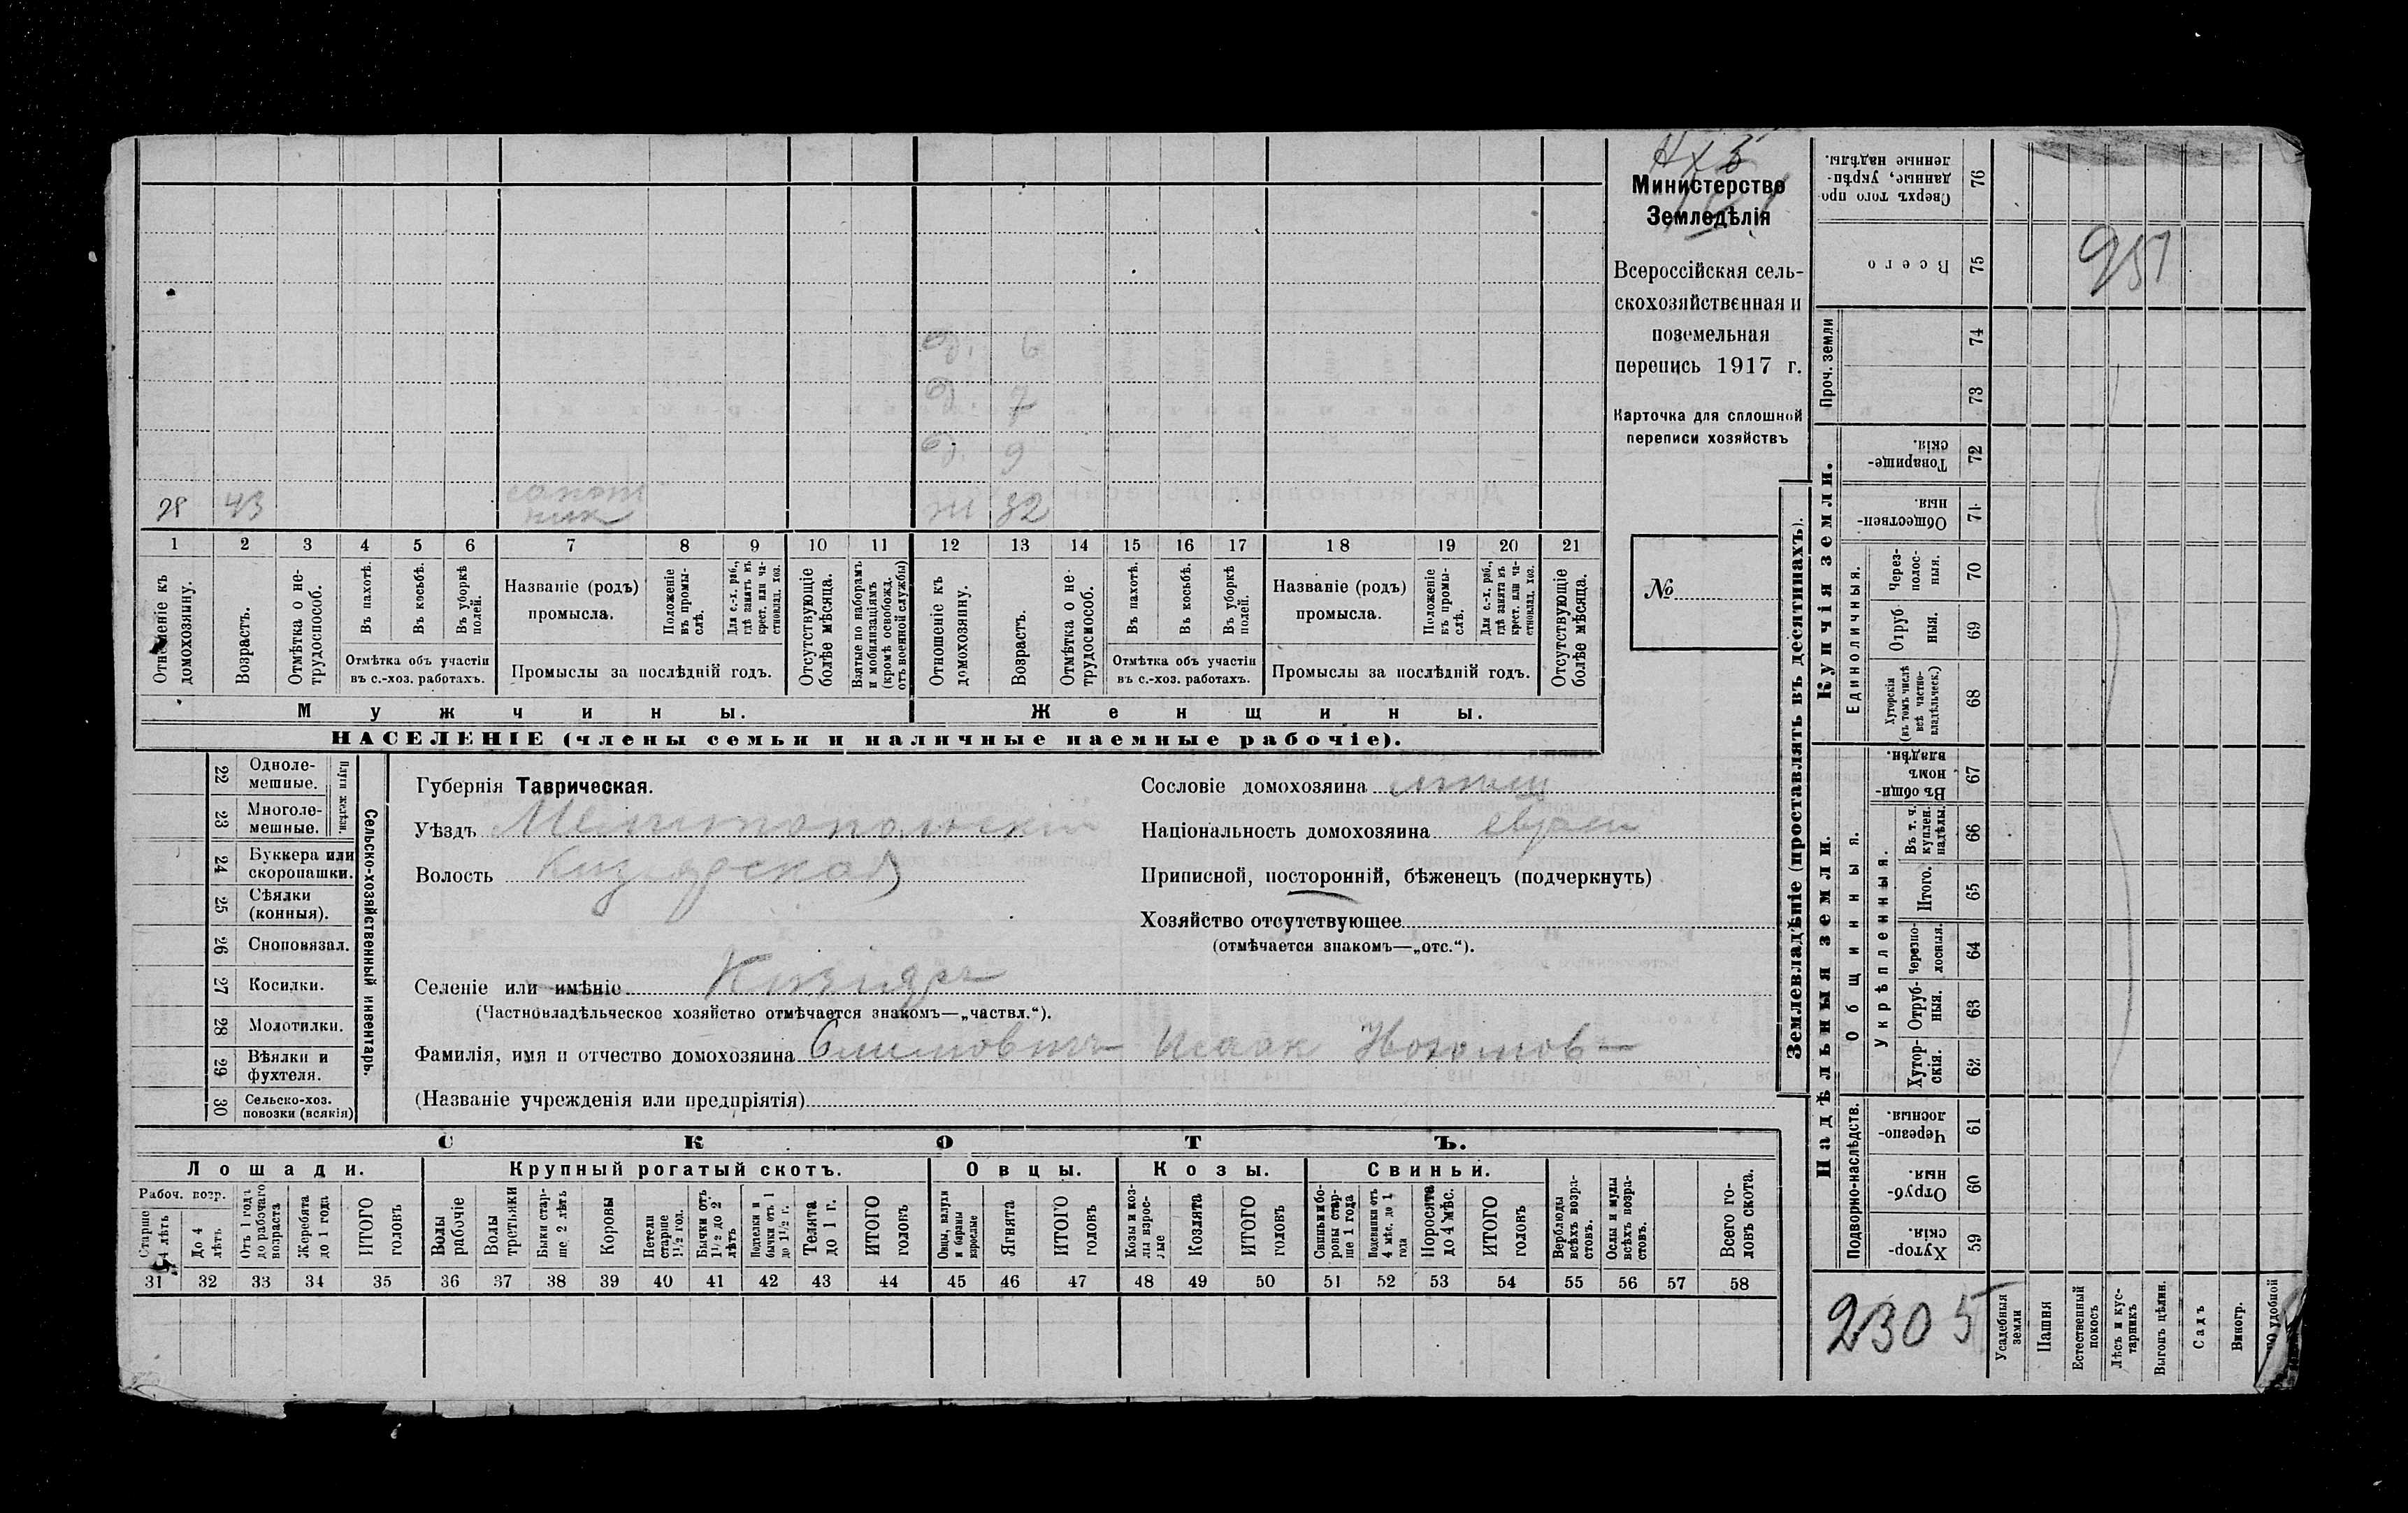 НХБ
Министерство
Земледѣлія
Всероссійская сель-
скохозяйственная и
поземельная
перепись 1917 г.
Карточка для сплошной
переписи хозяйствъ
№
д. 6
д. 7
д. 9
43 сапож
ник ж 32
1 2 3 4 5 6 7 8 9 10 11 12 13 14 15 16 17 18 19 20 21
Отношеніе къ домохозяину.
Возрастъ.
Отмѣтка о не-трудоспособ.
Въ пахотѣ.
Въ косьбѣ.
Въ уборкѣ полей.
Отмѣтка объ участіи
въ с.-хоз. работахъ.
Названіе (родъ)
промысла.
Положеніе въ промы-слѣ.
Для с.-х. раб., гдѣ занятъ въ крест. или ча-стновлад. хоз.
Промыслы за послѣдній годъ.
Отсутствующіе болѣе мѣсяца.
Взятые по наборамъ и мобилизаціямъ (кромѣ освобожд. отъ военной службы)
Отношеніе къ домохозяину.
Возрастъ.
Отмѣтка о не-трудоспособ.
Въ пахотѣ.
Въ косьбѣ.
Въ уборкѣ полей.
Отмѣтка объ участіи
въ с.-хоз. работахъ.
Названіе (родъ)
промысла.
Положеніе въ промы-слѣ.
Для с.-х. раб., гдѣ занята въ крест. или ча-стновлад. хоз.
Промыслы за послѣдній годъ.
Отсутствующіе болѣе мѣсяца.
Мужчины. Женщины.
НАСЕЛЕНІЕ (члены семьи и наличные наемные рабочіе).
Сельско-хозяйственный инвентарь.
Плуги желѣзн.
22 Одноле-мешные.
23 Многоле-мешные.
24 Буккера или скоропашки.
25 Сѣялки (конныя).
26 Сноповязал.
27 Косилки.
28 Молотилки.
29 Вѣялки и фухтеля.
30 Сельско-хоз. повозки (всякія)
Губернія Таврическая.
Уѣздъ Мелитопольскій
Волость Кизіярская
Селеніе или имѣніе Кизіяръ
(Частновладѣльческое хозяйство отмѣчается знакомъ—„частвл.“).
Фамилія, имя и отчество домохозяина Исаак
(Названіе учрежденія или предпріятія)
Сословіе домохозяина мѣщ
Національность домохозяина еврей
Приписной, посторонній, бѣженецъ (подчеркнуть)
Хозяйство отсутствующее
(отмѣчается знакомъ—„отс.“).
СКОТЪ.
Лошади. Крупный рогатый скотъ. Овцы. Козы. Свиньи.
Рабоч. возр.
Старше 4 лѣтъ
До 4 лѣтъ
Отъ 1 года до рабочаго возраста
Жеребята до 1 года
ИТОГО головъ
Волы рабочіе
Волы третьяки
Быки стар-ше 2 лѣтъ
Коровы
Нетели старше 1½ год.
Бычки отъ 1½ до 2 лѣтъ
Подтелки и бычки отъ 1 до 1½ г.
Телята до 1 г.
ИТОГО головъ
Овцы, валухи и бараны взрослые
Ягнята
ИТОГО головъ
Козы и коз-лы взрос-лые
Козлята
ИТОГО головъ
Свиньи и бо-роны стар-ше 1 года
Подсвинки отъ 4 мѣс. до 1 года
Поросята до 4 мѣс.
ИТОГО головъ
Верблюды всѣхъ возра-стовъ.
Ослы и мулы всѣхъ возра-стовъ.
Всего го-ловъ скота.
31 32 33 34 35 36 37 38 39 40 41 42 43 44 45 46 47 48 49 50 51 52 53 54 55 56 57 58
Землевладѣніе (проставлять въ десятинахъ).
Сверхъ того про-данные, укрѣп-ленные надѣлы. 76
Всего 75
951
Проч. земли 74 73
Купчія земли.
Товарище-скія. 72
Обществен-ныя. 71
Единоличныя.
Через-полос-ныя. 70
Отруб-ныя. 69
Хуторскія (въ томъ числѣ всѣ частно-владѣльческ.) 68
Надѣльныя земли.
Общинныя.
Въ общи-номъ владѣн. 67
Укрѣпленныя.
Въ т. ч. куплен. надѣлы. 66
Итого. 65
Черезпо-лосныя. 64
Отруб-ныя. 63
Хутор-скія. 62
Подворно-наслѣдств.
Черезпо-лосныя. 61
Отруб-ныя. 60
Хутор-скія. 59
2305
Усадебныя земли
Пашня
Естественный покосъ
Лѣсъ и кус-тарникъ
Выгонъ цѣлин.
Садъ
Виногр.
удобной